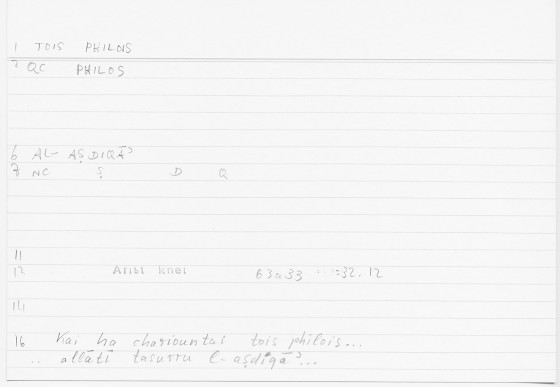 1 TOIS PHILOIS
2 QC PHILOS
6 AL- AṢDIQĀʾ
7 NC Ṣ D Q
11
12 Arist Rhet 63a33 =32.12
14
16 Kai ha chariountai tois philois...
.. allātī tasurru l-aṣdiqāʾ...